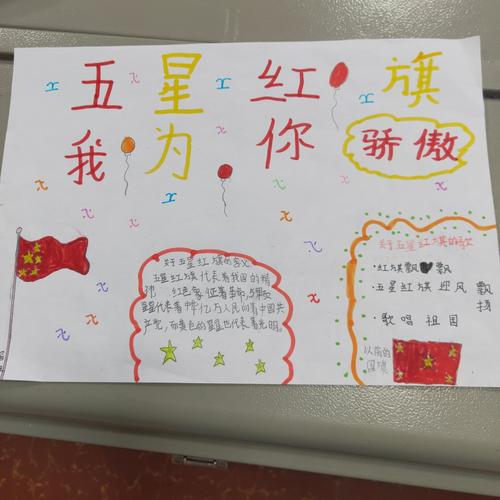 五星红旗
我为你骄傲
关于五星红旗的含义
五星红旗代表着我国的精
神 红色象征着革命,五颗
星星代表着 亿万人民向着中国共
产党,而黄色的星星也代表着光明。
关于五星红旗的歌
·红旗飘飘
·五星红旗迎风飘
扬
·歌唱祖国
以前的
国旗